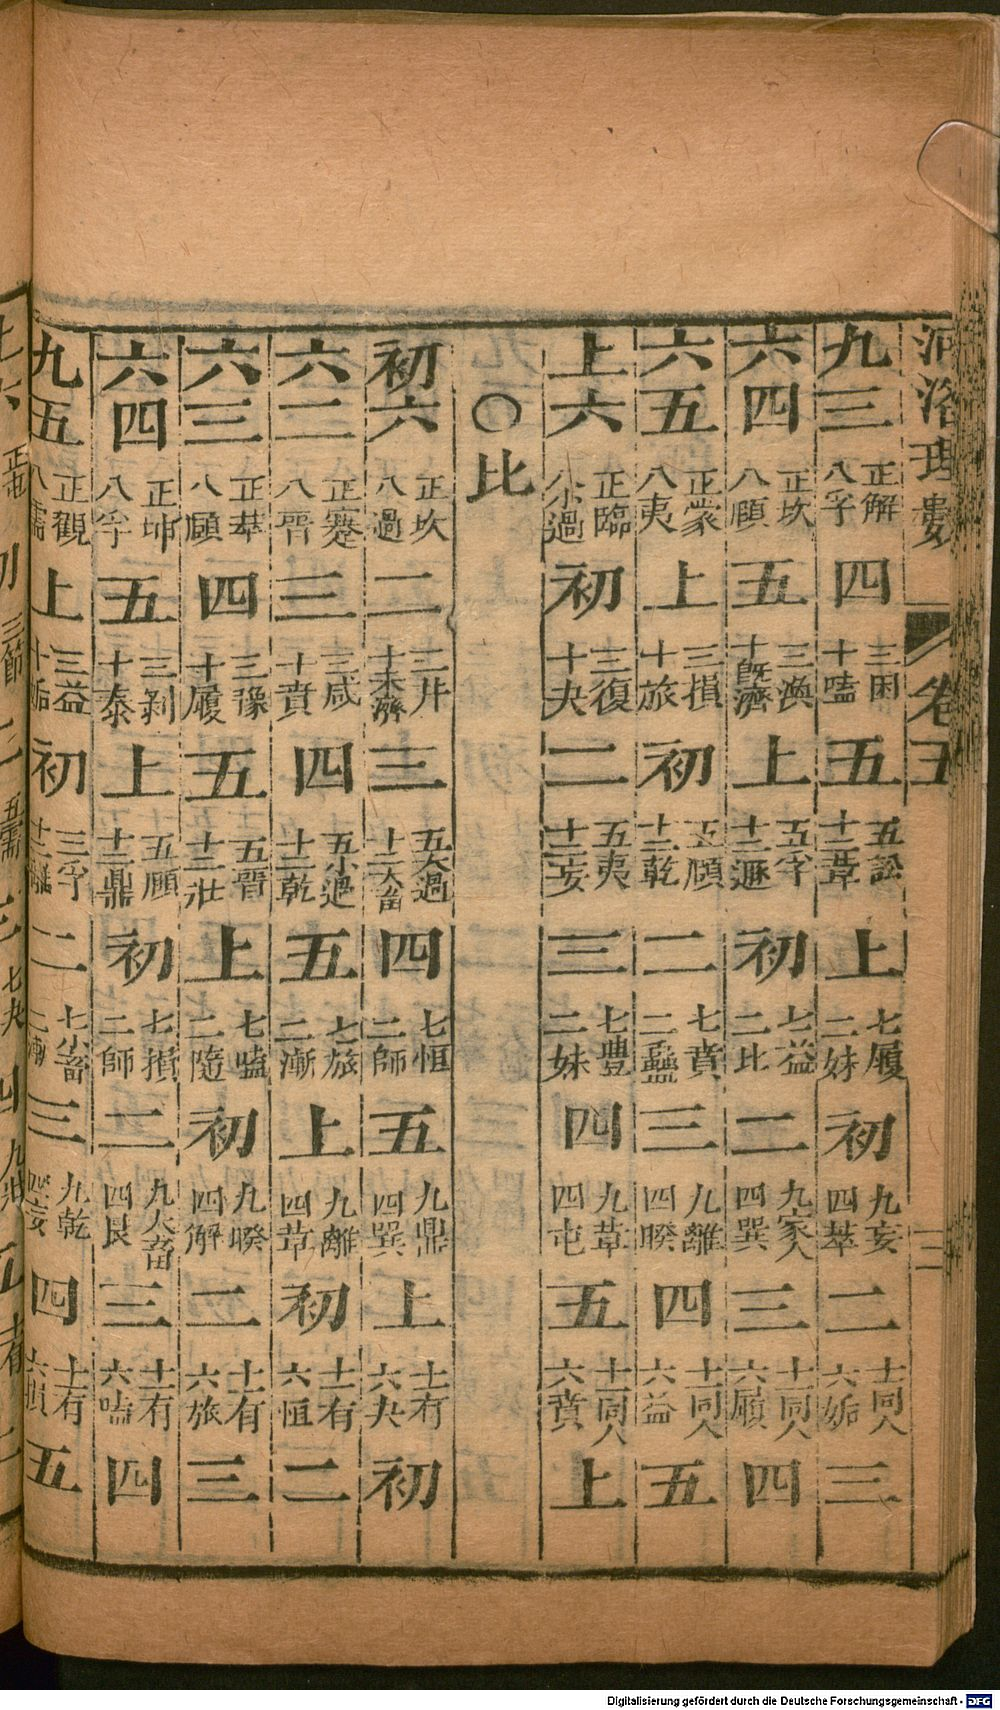 河洛理數 卷五
九三 正解 八孚 四 三困 十嗑 五 五訟 十二革 上 七履 二妹 初 九妄 四萃 二 十一同人 六姤 三
六四 正坎 八頤 五 三渙 十旣濟 上 五孚 十二遯 初 七益 二比 二 九家人 四巽 三 十一同人 六履 四
六五 正蒙 八夷 上 三損 十旅 初 五頤 十二乾 二 七賁 二蠱 三 九離 四睽 四 十一同人 六益 五
上六 正臨 八小過 初 三復 十夬 二 五夷 十二妄 三 七豐 二妹 四 九革 四屯 五 十一同人 六賁 上
○比
初六 正坎 八過 二 三井 十未濟 三 五大過 十二大畜 四 七恒 二師 五 九鼎 四巽 上 十一有 六夬 初
六二 正蹇 八晉 三 三咸 十賁 四 五小過 十二乾 五 七旅 二漸 上 九離 四革 初 十一有 六恒 二
六三 正萃 八頤 四 三豫 十履 五 五晉 十二壯 上 七嗑 二隨 初 九睽 四解 二 十一有 六旅 三
六四 正坤 八孚 五 三剝 十泰 上 五頤 十二鼎 初 七損 二師 二 九大畜 四艮 三 十一有 六嗑 四
九五 正觀 八需 上 三益 十姤 初 三孚 十二離 二 七小畜 三 九乾 四妄 四 十一有 六損 五
Digitalisierung gefördert durch die Deutsche Forschungsgemeinschaft - DFG